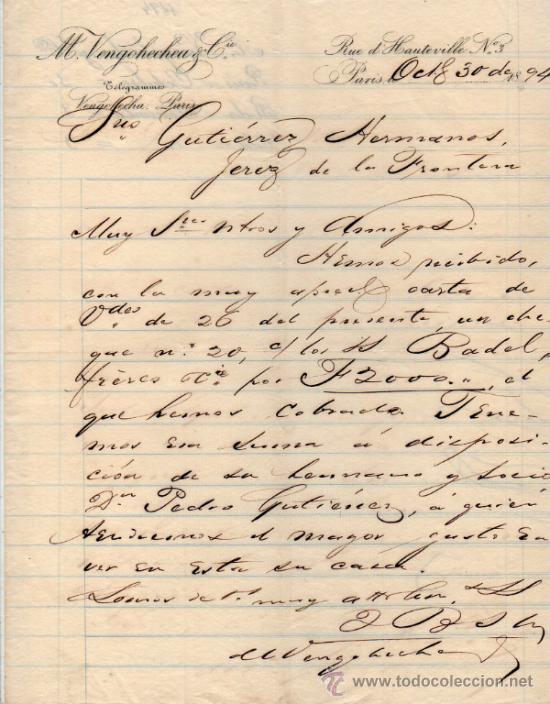 M. Vengohechea & Cie
Rue d'Hauteville No 3
Telegrammes
Vengohechea. Paris
Paris, Oct 30 de 1894
Sres Gutiérrez Hermanos,
Jerez de la Frontera
Muy Sres ntros y Amigos:
Hemos recibido,
con la muy apred carta de
Vdes de 26 del presente, un che-
que n.º 20, c/ los SS Badel,
frères & Cie por F 2000.,, el
que hemos cobrado. Tene-
mos esa suma á disposi-
ción de su hermano y socio
Dn Pedro Gutiérrez, á quién
tendremos el mayor gusto en
ver en esta su casa.
Somos de Vs muy att
S S
Q B S M
M Vengohechea
todocoleccion.net